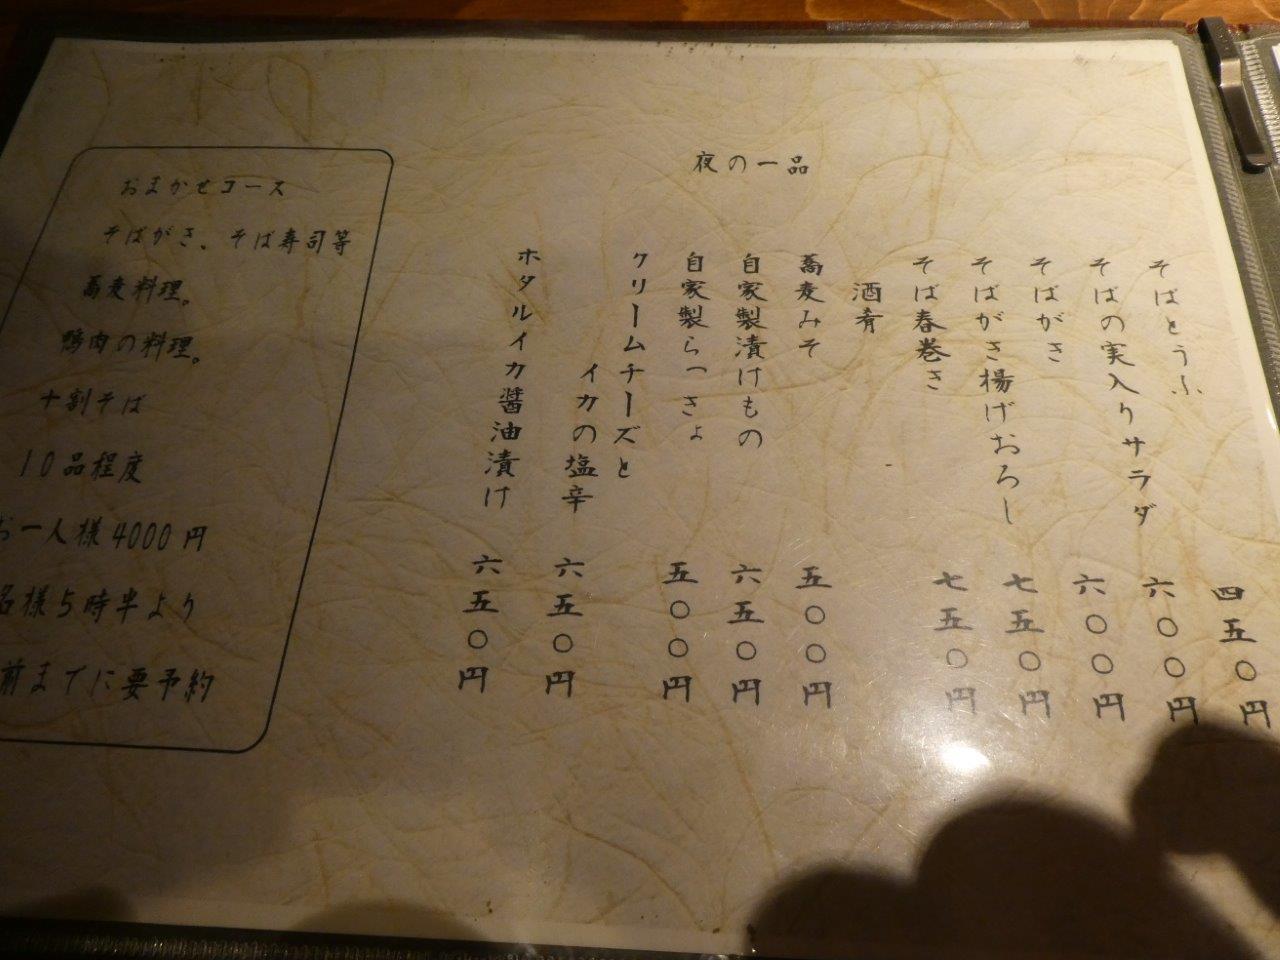 夜の一品
そばとうふ 四五〇円
そばの実入りサラダ 六〇〇円
そばがき 六〇〇円
そばがき揚げおろし 七五〇円
そば春巻き 七五〇円
酒肴
蕎麦みそ 五〇〇円
自家製漬けもの 六五〇円
自家製らっきょ 五〇〇円
クリームチーズと
イカの塩辛 六五〇円
ホタルイカ醤油漬け 六五〇円
おまかせコース
そばがき、そば寿司等
蕎麦料理。
鴨肉の料理。
十割そば
10品程度
お一人様4000円
名様5時半より
前までに要予約